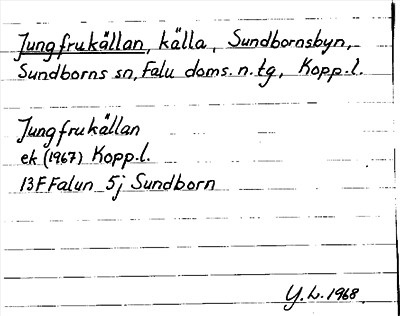 Jungfrukällan, källa, Sundbornsbyn,
Sundborns sn, Falu doms. n. tg, Kopp. l.
Jungfrukällan
ek (1967) Kopp. l.
13F Falun 5j Sundborn
Y. L. 1968.